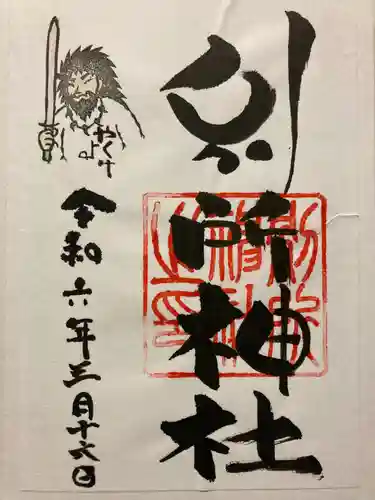 別所神社
やくけよ
令和六年三月十六日